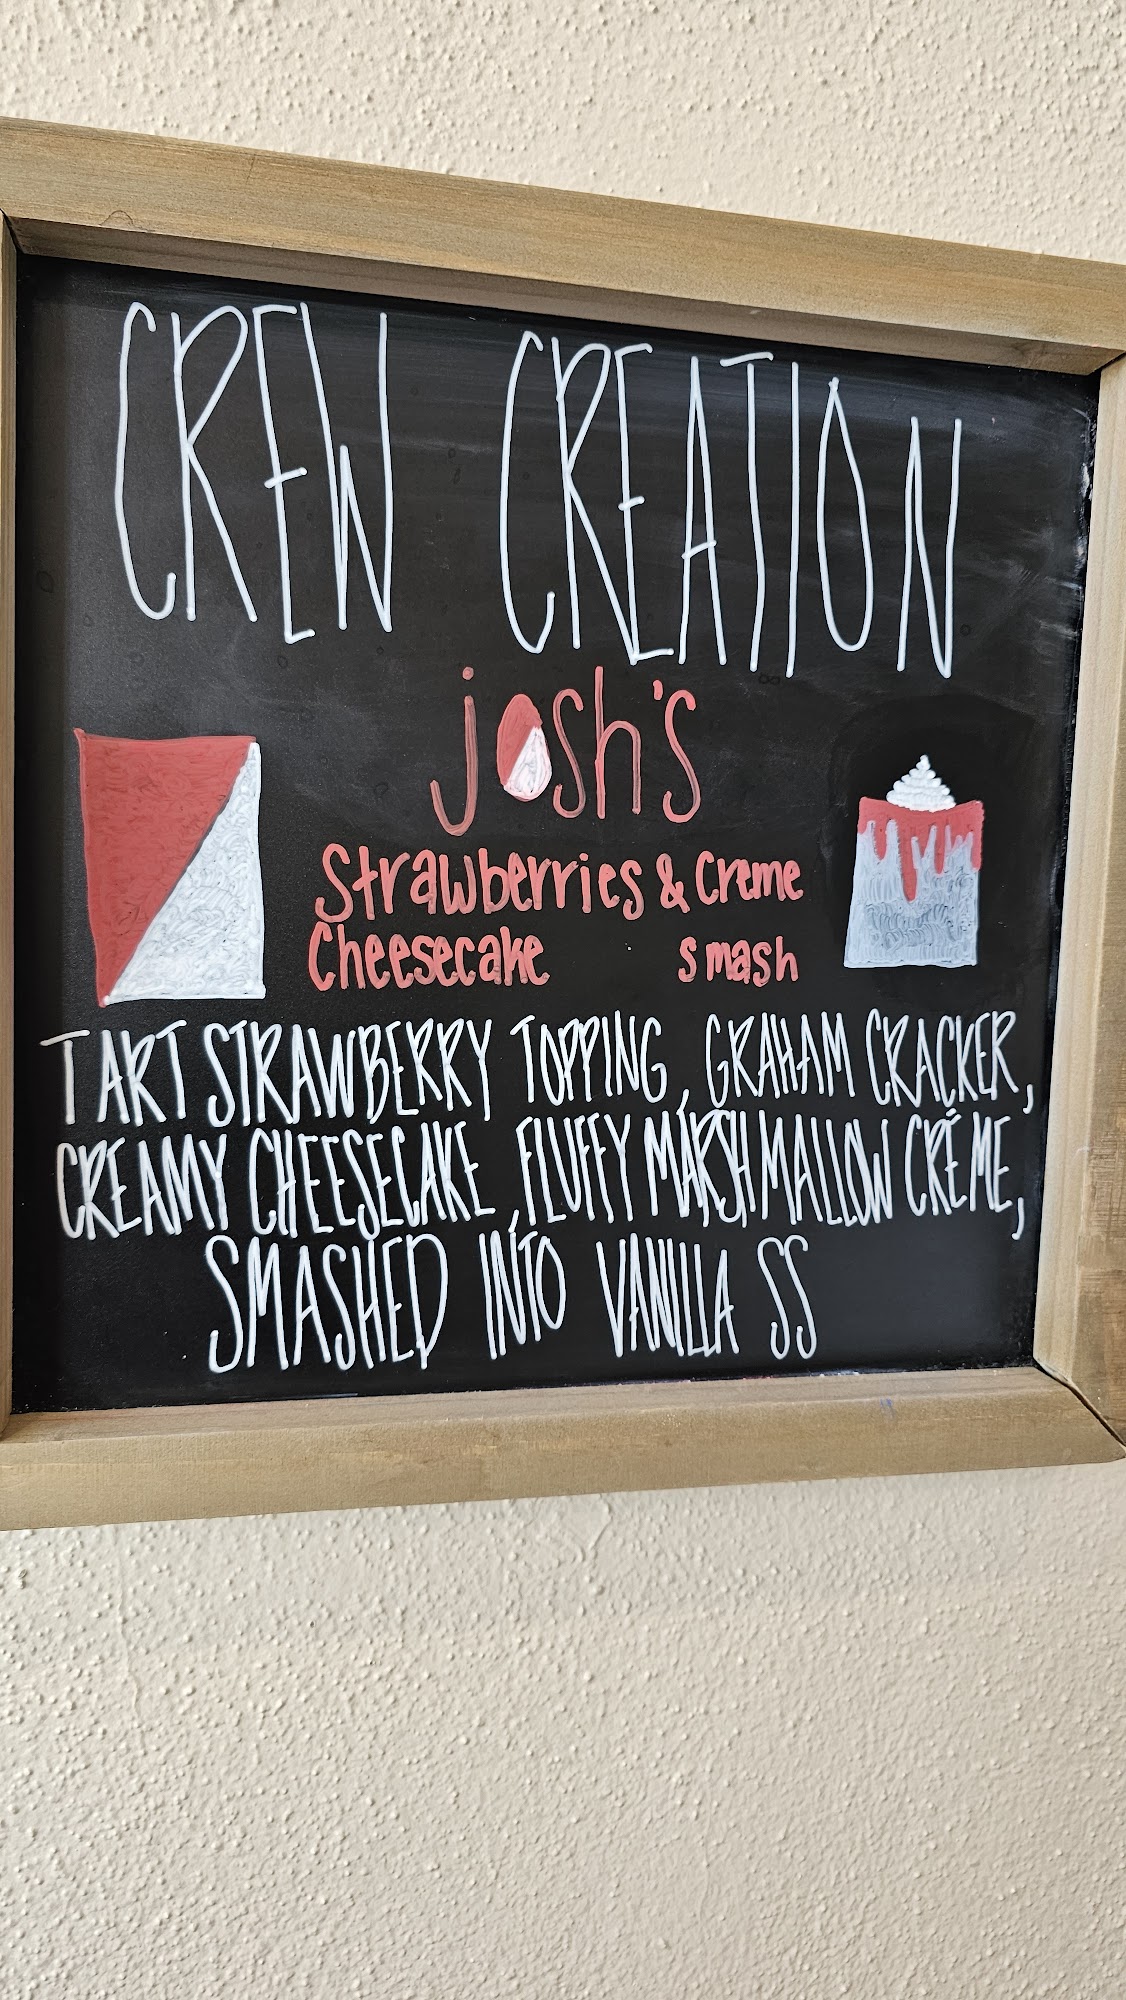 CREW CREATION
josh's
Strawberries & Creme
Cheesecake smash
TART STRAWBERRY TOPPING, GRAHAM CRACKER,
CREAMY CHEESECAKE, FLUFFY MARSHMALLOW CRÉME,
SMASHED INTO VANILLA SS